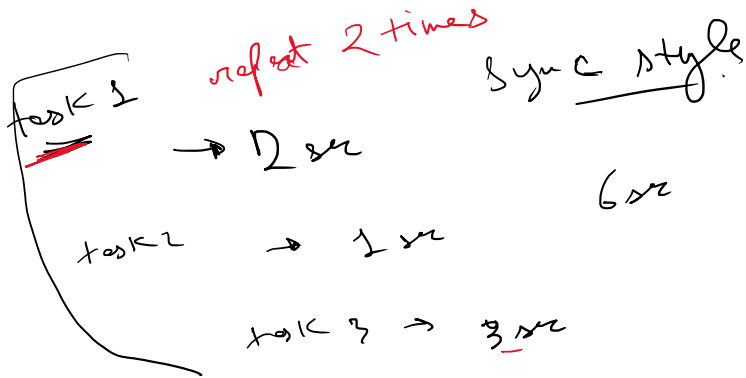 repeat 2 times
sync style
task 1
→ 2 sec
6 sec
task 2 → 1 sec
task 3 → 3 sec